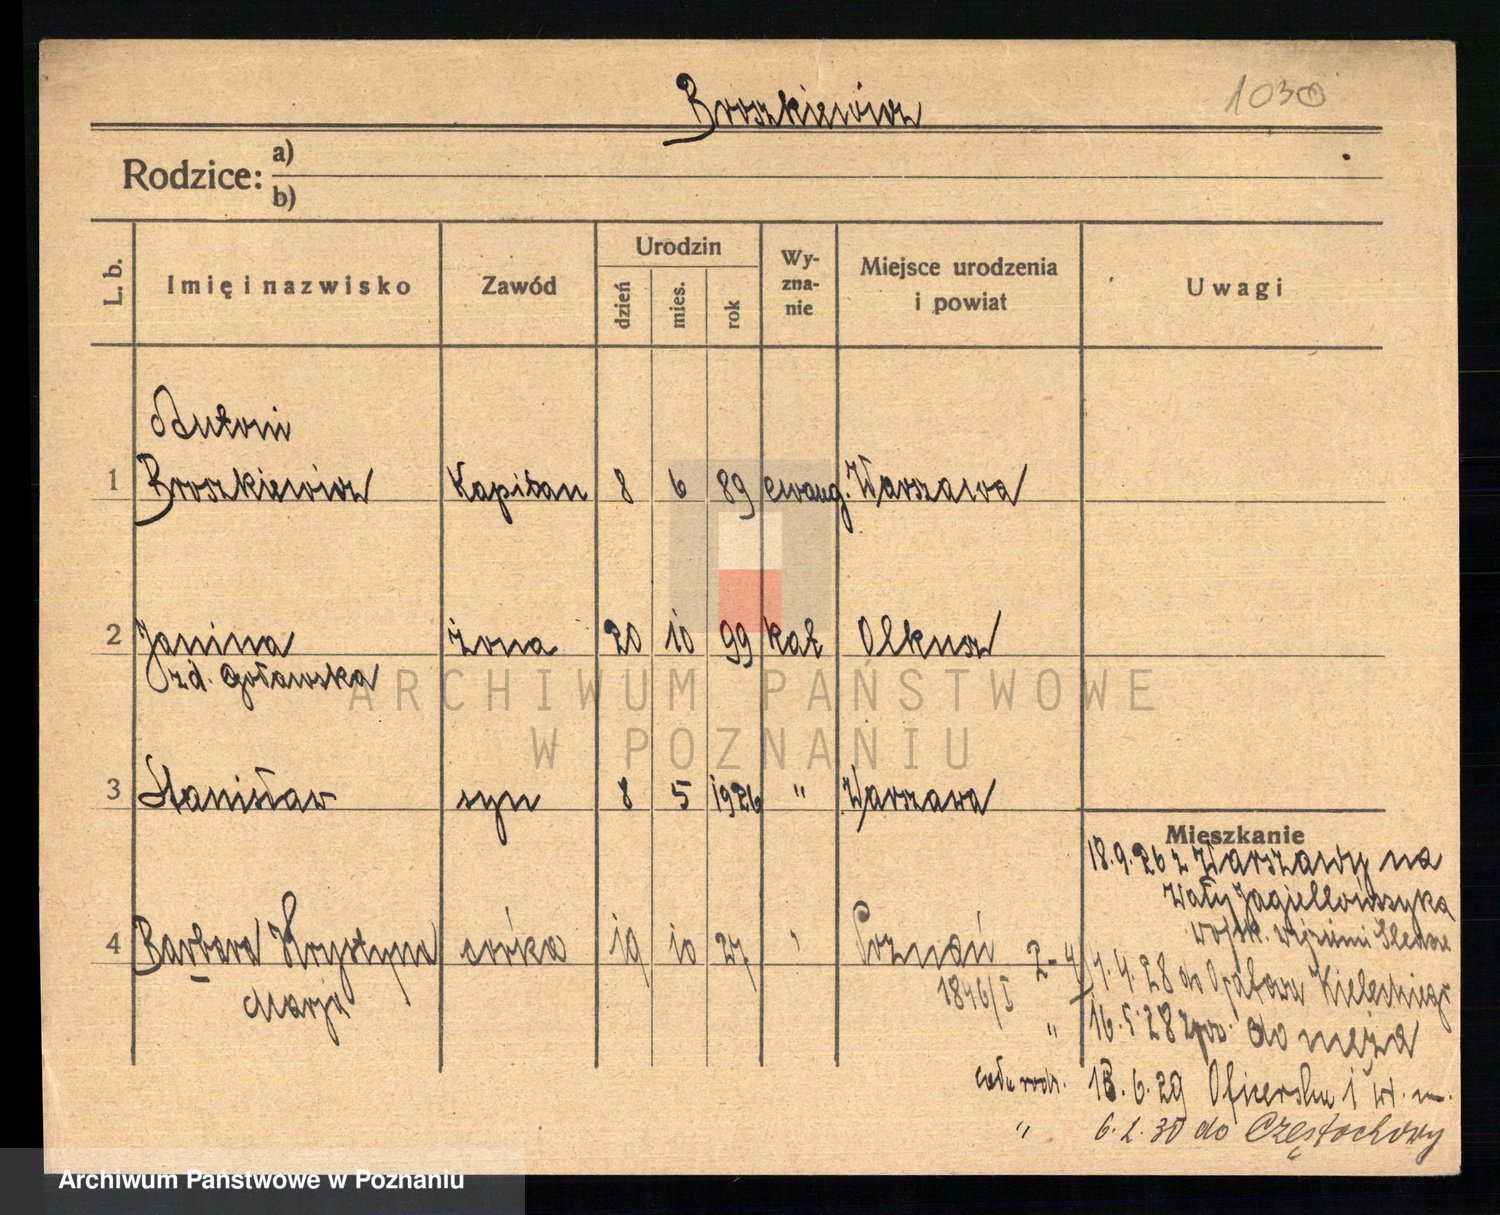 Broszkiewicz
1030
Rodzice: a)
b)
L. b.
Imię i nazwisko
Zawód
Urodzin
dzień
mies.
rok
Wy-
zna-
nie
Miejsce urodzenia
i powiat
Uwagi
Antoni
1 Broszkiewicz Kapitan 8 6 89 ewang. Warszawa
2 Janina żona 20 10 99 kat Olkusz
zd. Goławska
ARCHIWUM PAŃSTWOWE
W POZNANIU
3 Stanisław syn 8 5 1926 " Warszawa
Mieszkanie
18.9.26 z Warszawy na
Wały Jagiellończyka
wojsk. więzienie śledcze
4 Barbara Krystyna córka 19 10 27 " Poznań
Marja
1846/I
2-4 4.28 do Kieleckiego
" 16.5.28 do męża
cała rodz. 18.6.29 Oficerska 1 w. m.
" 6.2.30 do Częstochowy
Archiwum Państwowe w Poznaniu